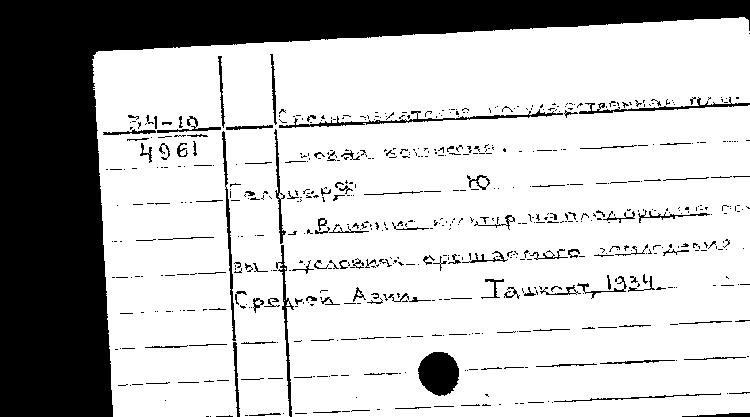 34-10
4961
Среднеазиатская государственная пла-
новая комиссия.
Гельцер, Ф Ю
...Влияние культур на плодородие поч
вы в условиях орошаемого земледелия
Средней Азии. Ташкент, 1934.